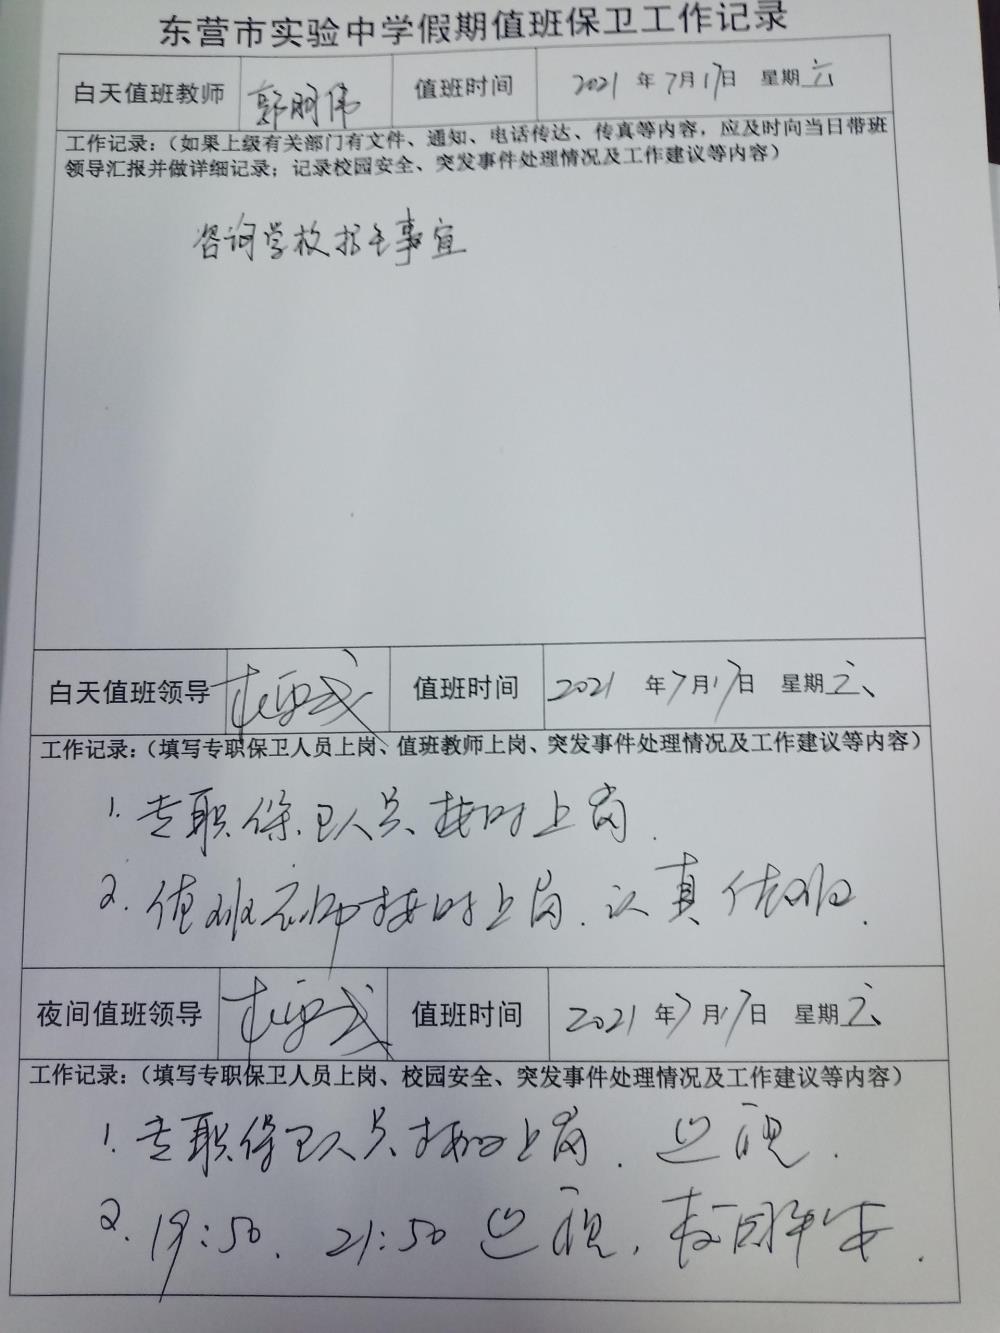 东营市实验中学假期值班保卫工作记录
白天值班教师 郭明伟 值班时间 2021 年 7月17日 星期六
工作记录：（如果上级有关部门有文件、通知、电话传达、传真等内容，应及时向当日带班
领导汇报并做详细记录；记录校园安全、突发事件处理情况及工作建议等内容）
咨询学校招生事宜
白天值班领导 值班时间 2021 年7月17日 星期六
工作记录：（填写专职保卫人员上岗、值班教师上岗、突发事件处理情况及工作建议等内容）
1. 专职保卫人员按时上岗.
2. 值班教师按时上岗.认真值班.
夜间值班领导 值班时间 2021 年7月17日 星期六
工作记录：（填写专职保卫人员上岗、校园安全、突发事件处理情况及工作建议等内容）
1. 专职保卫人员按时上岗.巡视.
2. 19:50. 21:50 巡视,校园平安.